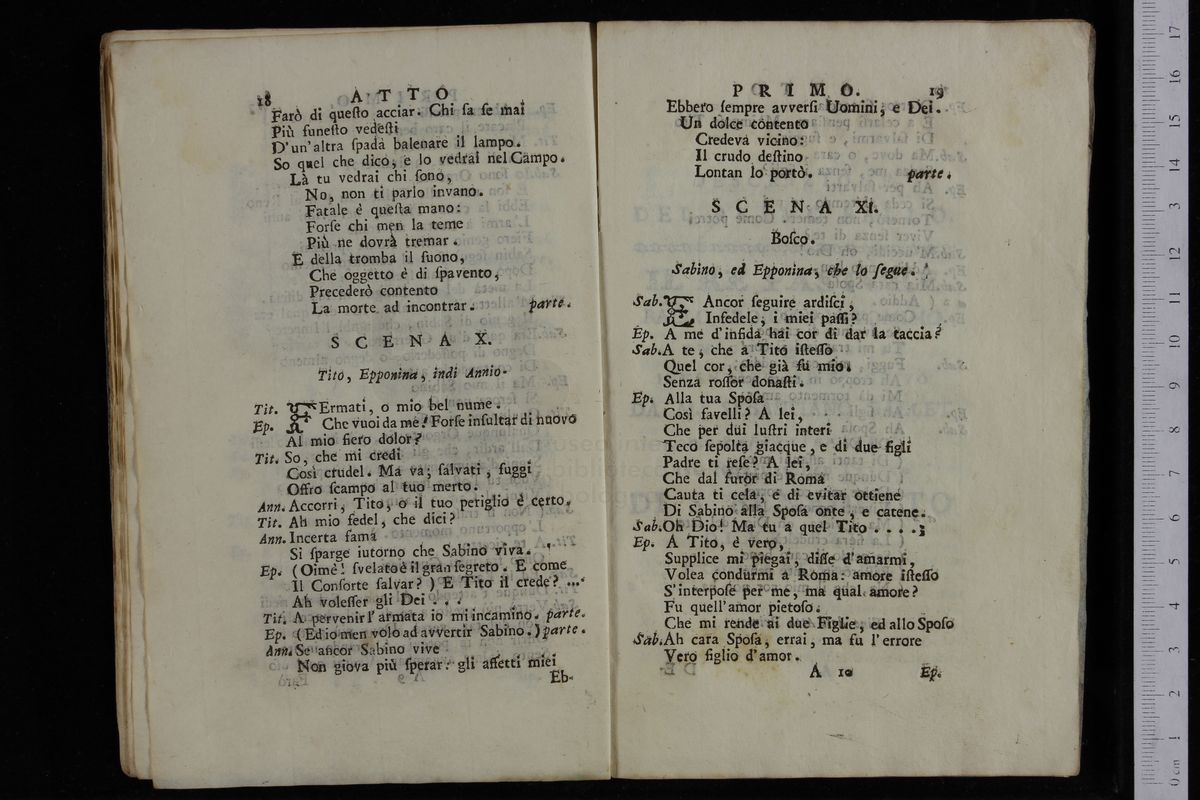 18 ATTO
Farò di questo acciar. Chi sa se mai
Più funesto vedesti
D'un'altra spada balenare il lampo.
So quel che dico, e lo vedrai nel Campo.
Là tu vedrai chi sono,
No, non ti parlo invano.
Fatale è questa mano:
Forse chi men la teme
Più ne dovrà tremar.
E della tromba il suono,
Che oggetto è di spavento,
Precederò contento
La morte ad incontrar. parte.
SCENA X.
Tito, Epponina, indi Annio.
Tit. FErmati, o mio bel nume.
Ep. Che vuoi da me? Forse insultar di nuovo
Al mio fiero dolor?
Tit. So, che mi credi
Così crudel. Ma va; salvati, fuggi
Offro scampo al tuo merto.
Ann. Accorri, Tito, o il tuo periglio è certo.
Tit. Ah mio fedel, che dici?
Ann. Incerta fama
Si sparge iutorno che Sabino viva.
Ep. (Oimè! svelato è il gran segreto. E come
Il Consorte salvar?) E Tito il crede? ...
Ah volesser gli Dei . . .
Tit. A pervenir l'armata io mi incamino. parte.
Ep. (Ed io men volo ad avvertir Sabino.) parte.
Ann. Se ancor Sabino vive
Non giova più sperar: gli affetti miei
Eb-
PRIMO. 19
Ebbero sempre avversi Uomini, e Dei.
Un dolce contento
Credeva vicino:
Il crudo destino
Lontan lo portò. parte.
SCENA XI.
Bosco.
Sabino, ed Epponina, che lo segue.
Sab. E Ancor seguire ardisci,
Infedele, i miei passi?
Ep. A me d'infida hai cor di dar la taccia?
Sab. A te, che a Tito istesso
Quel cor, che già fu mio.
Senza rossor donasti.
Ep. Alla tua Sposa
Così favelli? A lei,
Che per dui lustri interi
Teco sepolta giacque, e di due figli
Padre ti rese? A lei,
Che dal furor di Roma
Cauta ti cela, e di evitar ottiene
Di Sabino alla Sposa onte, e catene.
Sab. Oh Dio! Ma tu a quel Tito . . . .;
Ep. A Tito, è vero,
Supplice mi piegai, disse d'amarmi,
Volea condurmi a Roma: amore istesso
S'interpose per me, ma qual amore?
Fu quell'amor pietoso.
Che mi rende ai due Figlie, ed allo Sposo
Sab. Ah cara Sposa, errai, ma fu l'errore
Vero figlio d'amor.
A 10 Ep.